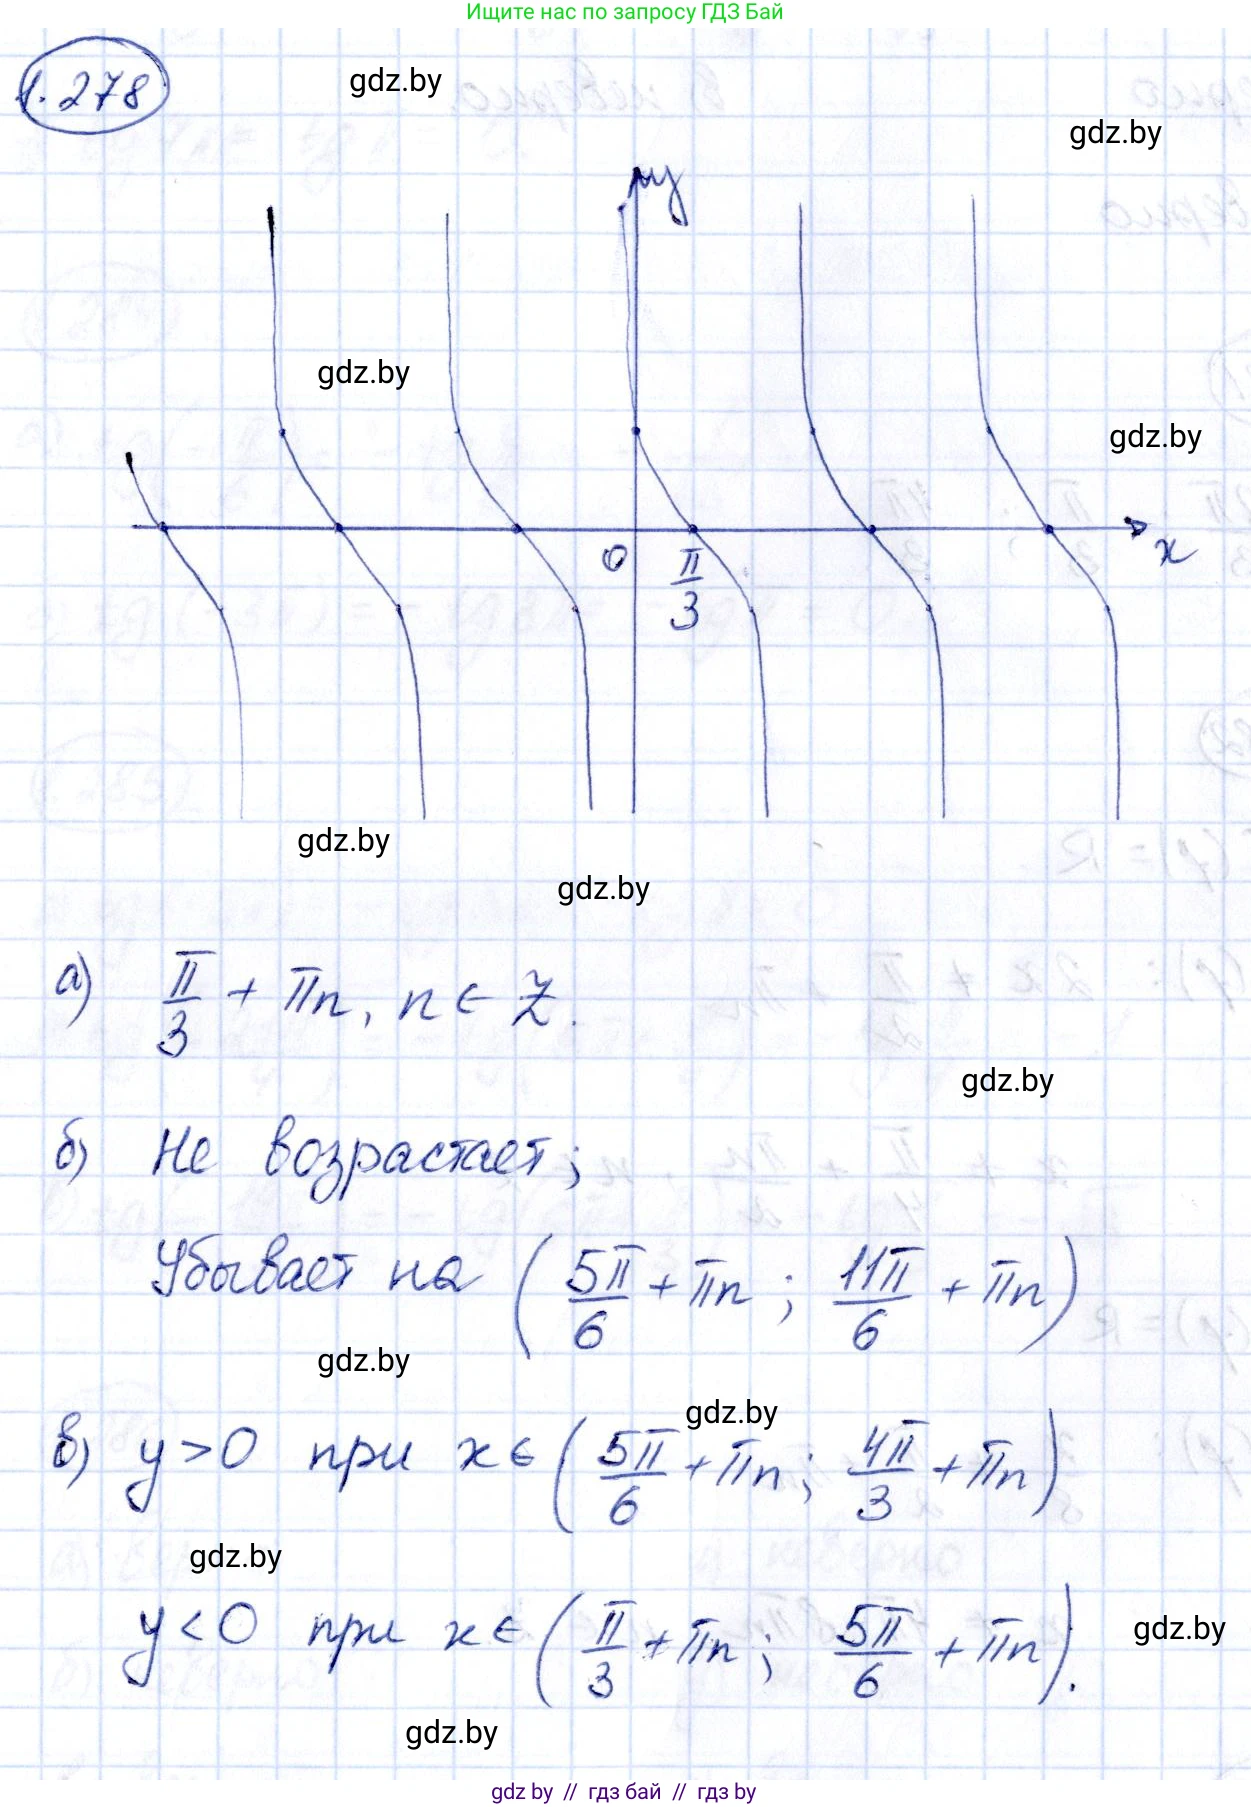 Ищите нас по запросу ГДЗ Бай
1.278
gdz.by
gdz.by
y
gdz.by
gdz.by
0
π/3
x
gdz.by
gdz.by
а) π/3 + πn, n ∈ Z.
gdz.by
б) Не возрастает;
Убывает на (5π/6 + πn ; 11π/6 + πn)
gdz.by
gdz.by
в) y > 0 при x ∈ (5π/6 + πn ; 4π/3 + πn)
gdz.by
y < 0 при x ∈ (π/3 + πn ; 5π/6 + πn).
gdz.by
gdz.by
gdz by // гдз бай // гдз by